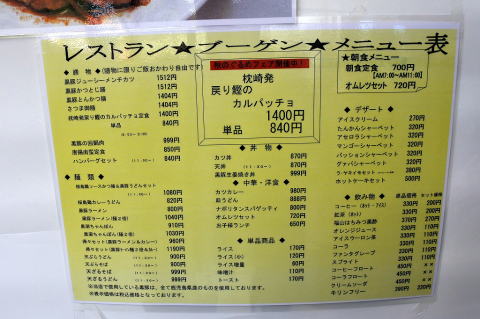 レストラン★ブーゲン★メニュー表
◆ 膳 物 ◆(膳物に限りご飯おかわり自由です)
黒豚ジューシーメンチカツ 1512円
黒豚かつとじ膳 1512円
黒豚とんかつ膳 1404円
さつま御膳 1404円
枕崎発戻り鰹のカルパッチョ定食 1400円
単品 840円
黒豚の 999円
850円
ハンバーグセット 840円
◆ 麺 類 ◆
1080円
820円
黒豚ラーメン 800円
黒豚ラーメン(麺2倍) 1040円
黒豚ちゃんぽん 910円
黒豚ちゃんぽん(麺2倍) 1030円
980円
1190円
天ぷらうどん 990円
天ぷらそば 990円
天ざるそば 999円
天ざるうどん 999円
※表示価格は税込価格となっております。
秋のぐるめフェア開催中!
枕崎発
戻り鰹の
カルパッチョ
1400円
単品 840円
◆ 丼 物 ◆
カツ丼 870円
天丼 870円
黒豚生姜焼き丼 999円
◆ 中華・洋食 ◆
カツカレー 980円
皿うどん 840円
ナポリタンスパゲッティ 800円
オムレツセット 720円
お子様ランチ 650円
◆ 単品商品 ◆
ライス 170円
ライス(小) 120円
ライス増量 60円
味噌汁 110円
トースト 170円
★朝食メニュー
朝食定食 700円
【AM7:00~AM11:00】
オムレツセット 720円
◆ デザート ◆
アイスクリーム 270円
たんかんシャーベット 320円
アセロラシャーベット 320円
マンゴーシャーベット 320円
パッションシャーベット 320円
グァバシャーベット 320円
ホットケーキセット 500円
◆ 飲み物 ◆ 単品価格 セット価格
コーヒー(ホット・アイス) 330円 200円
紅茶(ホット) 330円 200円
370円 270円
オレンジジュース 330円 110円
アイスウーロン茶 330円 110円
コーラ 330円 110円
ファンタグレープ 330円 110円
スプライト 330円 110円
コーヒーフロート 450円 ××
コーラフロート 450円 ××
クリームソーダ 450円 ××
キリンフリー 390円 220円